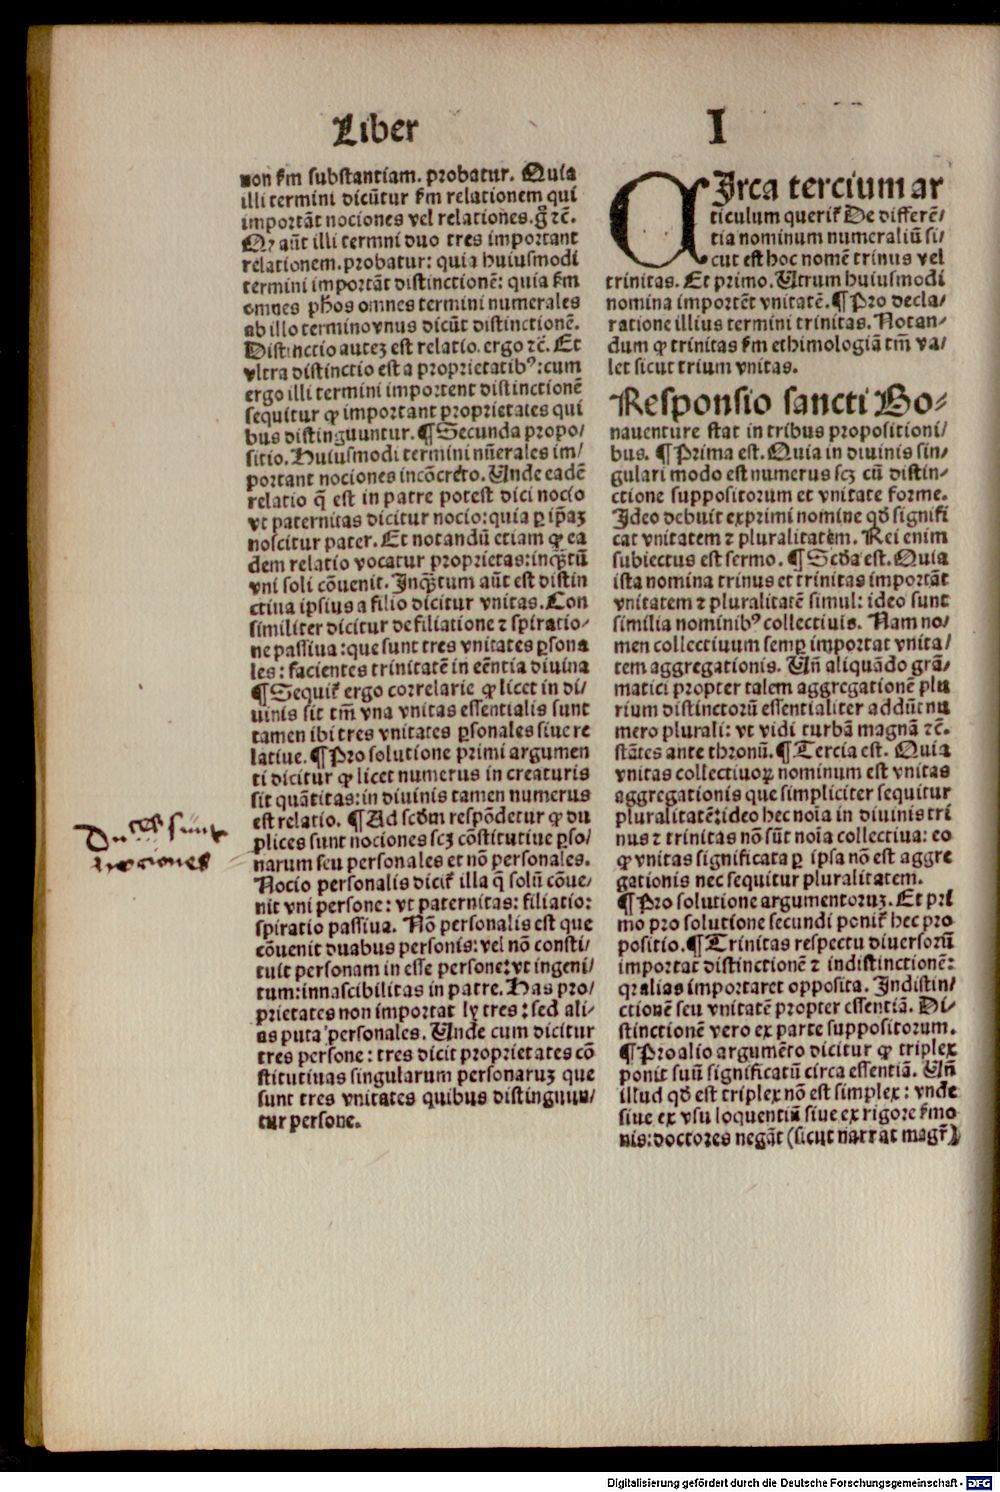 Liber I
non ẜm substantiam. probatur. Quia
illi termini dicūtur ẜm relationem qui
importāt nociones vel relationes. g̃ ꝛc̄.
Qꝛ aūt illi termni duo tres important
relationem. probatur: quia huiusmodi
termini importāt distinctionē: quia ẜm
omnes ph̄os omnes termini numerales
ab illo termino vnus dicūt distinctionē.
Distinctio autez est relatio. ergo ꝛc̄. Et
vltra distinctio est a proprietatibꝰ: cum
ergo illi termini importent distinctionē
sequitur ꝙ important proprietates qui
bus distinguuntur. ¶ Secunda propo⸗
sitio. Huiusmodi termini nūerales im⸗
portant nociones incōcreto. Unde eadē
relatio q̄ est in patre potest dici nocio
vt paternitas dicitur nocio: quia ꝑ ip̄aꝫ
noscitur pater. Et notandū etiam ꝙ ea
dem relatio vocatur proprietas: inqͣꝫtū
vni soli cōuenit. Inqͣꝫtum aūt est distin
ctiua ipsius a filio dicitur vnitas. Con
similiter dicitur de filiatione ⁊ spiratio⸗
ne passiua: que sunt tres vnitates ꝑsona
les: facientes trinitatē in eēntia diuina
¶ Sequiť ergo correlarie ꝙ licet in di⸗
uinis sit tm̄ vna vnitas essentialis sunt
tamen ibi tres vnitates ꝑsonales siue re
latiue. ¶ Pro solutione primi argumen
ti dicitur ꝙ licet numerus in creaturis
sit quātitas: in diuinis tamen numerus
est relatio. ¶ Ad scd̄m respōdetur ꝙ du
plices sunt nociones scꝫ cōstitutiue ꝑso⸗
narum seu personales et nō personales.
Nocio personalis diciť illa q̄ solū cōue⸗
nit vni persone: vt paternitas: filiatio:
spiratio passiua. Nō personalis est que
cōuenit duabus personis: vel nō consti⸗
tuit personam in esse persone: vt ingeni⸗
tum: innascibilitas in patre. Has pro⸗
prietates non importat ly tres: sed ali⸗
as puta personales. Unde cum dicitur
tres persone: tres dicit proprietates cō
stitutiuas singularum personaruꝫ que
sunt tres vnitates quibus distinguun⸗
tur persone.
sunt
nociones
CIrca tercium ar
ticulum queriť De differē⸗
tia nominum numeraliū si⸗
cut est hoc nomē trinus vel
trinitas. Et primo. Utrum huiusmodi
nomina importēt vnitatē. ¶ Pro decla⸗
ratione illius termini trinitas. Notan⸗
dum ꝙ trinitas ẜm ethimologiā tm̄ va⸗
let sicut trium vnitas.
Responsio sancti Bo⸗
nauenture stat in tribus propositioni⸗
bus. ¶ Prima est. Quia in diuinis sin⸗
gulari modo est numerus scꝫ cū distin⸗
ctione suppositorum et vnitate forme.
Ideo debuit exprimi nomine qd̄ signifi
cat vnitatem ⁊ pluralitatem. Rei enim
subiectus est sermo. ¶ Scd̄a est. Quia
ista nomina trinus et trinitas importāt
vnitatem ⁊ pluralitatē simul: ideo sunt
similia nominibꝰ collectiuis. Nam no⸗
men collectiuum semꝑ importat vnita⸗
tem aggregationis. Un̄ aliquādo grā⸗
matici propter talem aggregationē plu
rium distinctorū essentialiter addūt nu
mero plurali: vt vidi turbā magnā ꝛc̄.
stātes ante thronū. ¶ Tercia est. Quia
vnitas collectiuoꝝ nominum est vnitas
aggregationis que simpliciter sequitur
pluralitatē: ideo hec noīa in diuinis tri
nus ⁊ trinitas nō sūt noīa collectiua: eo
ꝙ vnitas significata ꝑ ipsa nō est aggre
gationis nec sequitur pluralitatem.
¶ Pro solutione argumentoruꝫ. Et pri
mo pro solutione secundi poniť hec pro
positio. ¶ Trinitas respectu diuersorū
importat distinctionē ⁊ indistinctionē:
qꝛ alias importaret opposita. Indistin⸗
ctionē seu vnitatē propter essentiā. Di⸗
stinctionē vero ex parte suppositorum.
¶ Pro alio argumēto dicitur ꝙ triplex
ponit suū significatū circa essentiā. Un̄
illud qd̄ est triplex nō est simplex: vnde
siue ex vsu loquentiū siue ex rigore ẜmo
nis: doctores negāt (sicut narrat magr̄)
Digitalisierung gefördert durch die Deutsche Forschungsgemeinschaft - DFG